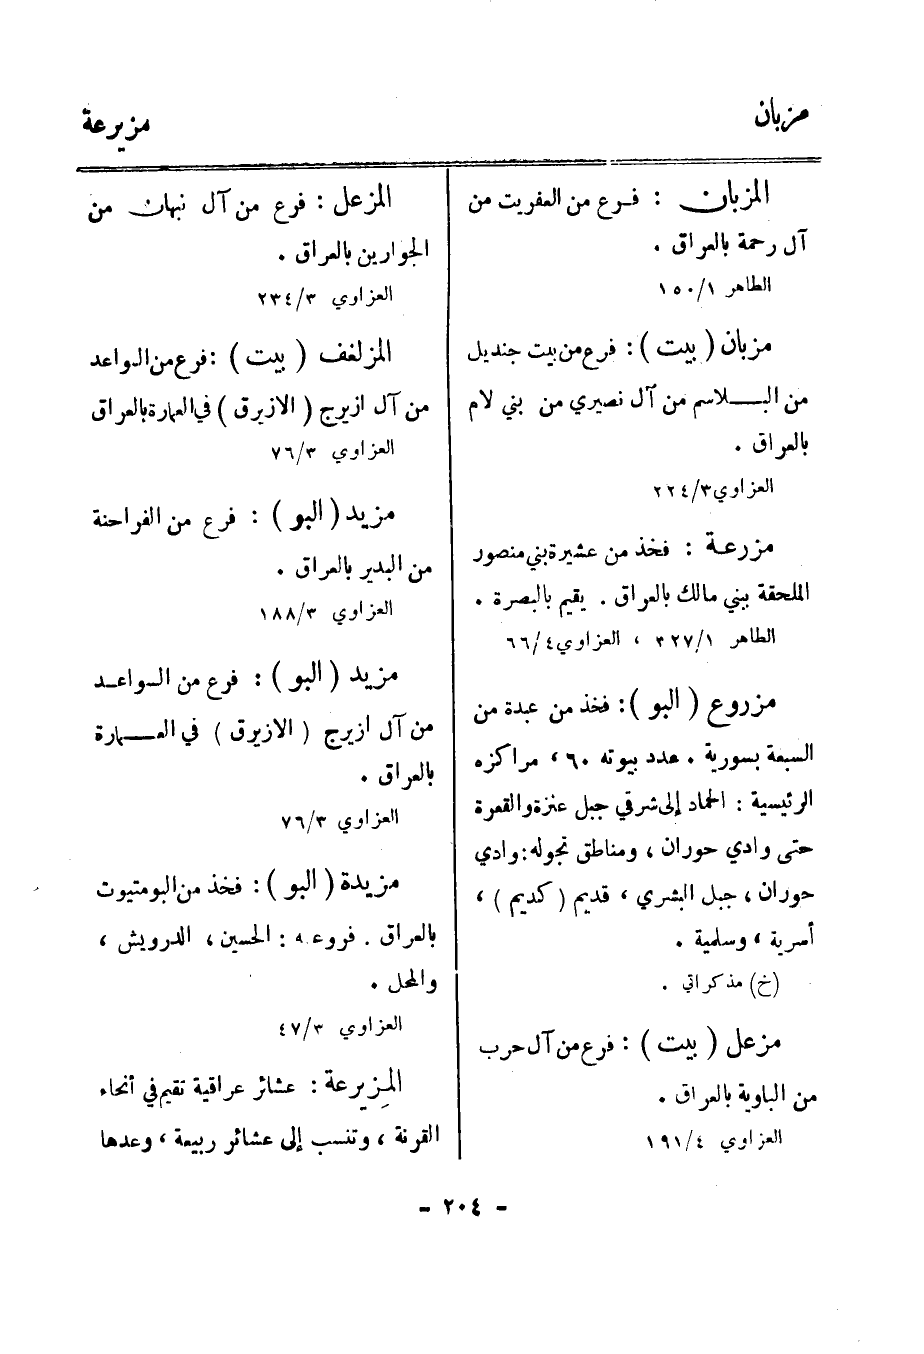 مزبان
مزيرعة
المزبان : فرع من العفريت من
آل رحمة بالعراق .
الطاهر ١/ ١٥٠
مزبان ( بيت ) : فرع من بيت جنديل
من البلاسم من آل نصيري من بني لام
بالعراق .
العزاوي ٣/ ٢٢٤
مزرعة : فخذ من عشيرة بني منصور
الملحقة ببني مالك بالعراق . يقيم بالبصرة .
الطاهر ١/ ٣٢٧ ، العزاوي ٤/ ٦٦
مزروع ( البو ) : فخذ من عبدة من
السبعة بسورية . عدد بيوته ٦٠ ، مراكزه
الرئيسية : الحماد إلى شرقي جبل عنزة والقعرة
حتى وادي حوران ، ومناطق تجوله : وادي
حوران ، جبل البشري ، قديم ( كديم ) ،
أسرية ، وسلمية .
(خ) مذكراتي .
مزعل ( بيت ) : فرع من آل حرب
من الباوية بالعراق .
العزاوي ٤/ ١٩١
المزعل : فرع من آل نبهان من
الجوارين بالعراق .
العزاوي ٣/ ٢٣٤
المزلغف ( بيت ) : فرع من الواعد
من آل ازيرج ( الازيرق ) في العمارة بالعراق
العزاوي ٣/ ٧٦
مزيد ( البو ) : فرع من الفراحنة
من البدير بالعراق .
العزاوي ٣/ ١٨٨
مزيد ( البو ) : فرع من الواعد
من آل ازيرج ( الازيرق ) في العمارة
بالعراق .
العزاوي ٣/ ٧٦
مزيدة ( البو ) : فخذ من البومتيوت
بالعراق . فروعه : الحسين ، الدرويش ،
والمحل .
العزاوي ٣/ ٤٧
المزيرعة : عشائر عراقية تقيم في أنحاء
القرنة ، وتنسب إلى عشائر ربيعة ، وعدها
- ٢٠٤ -